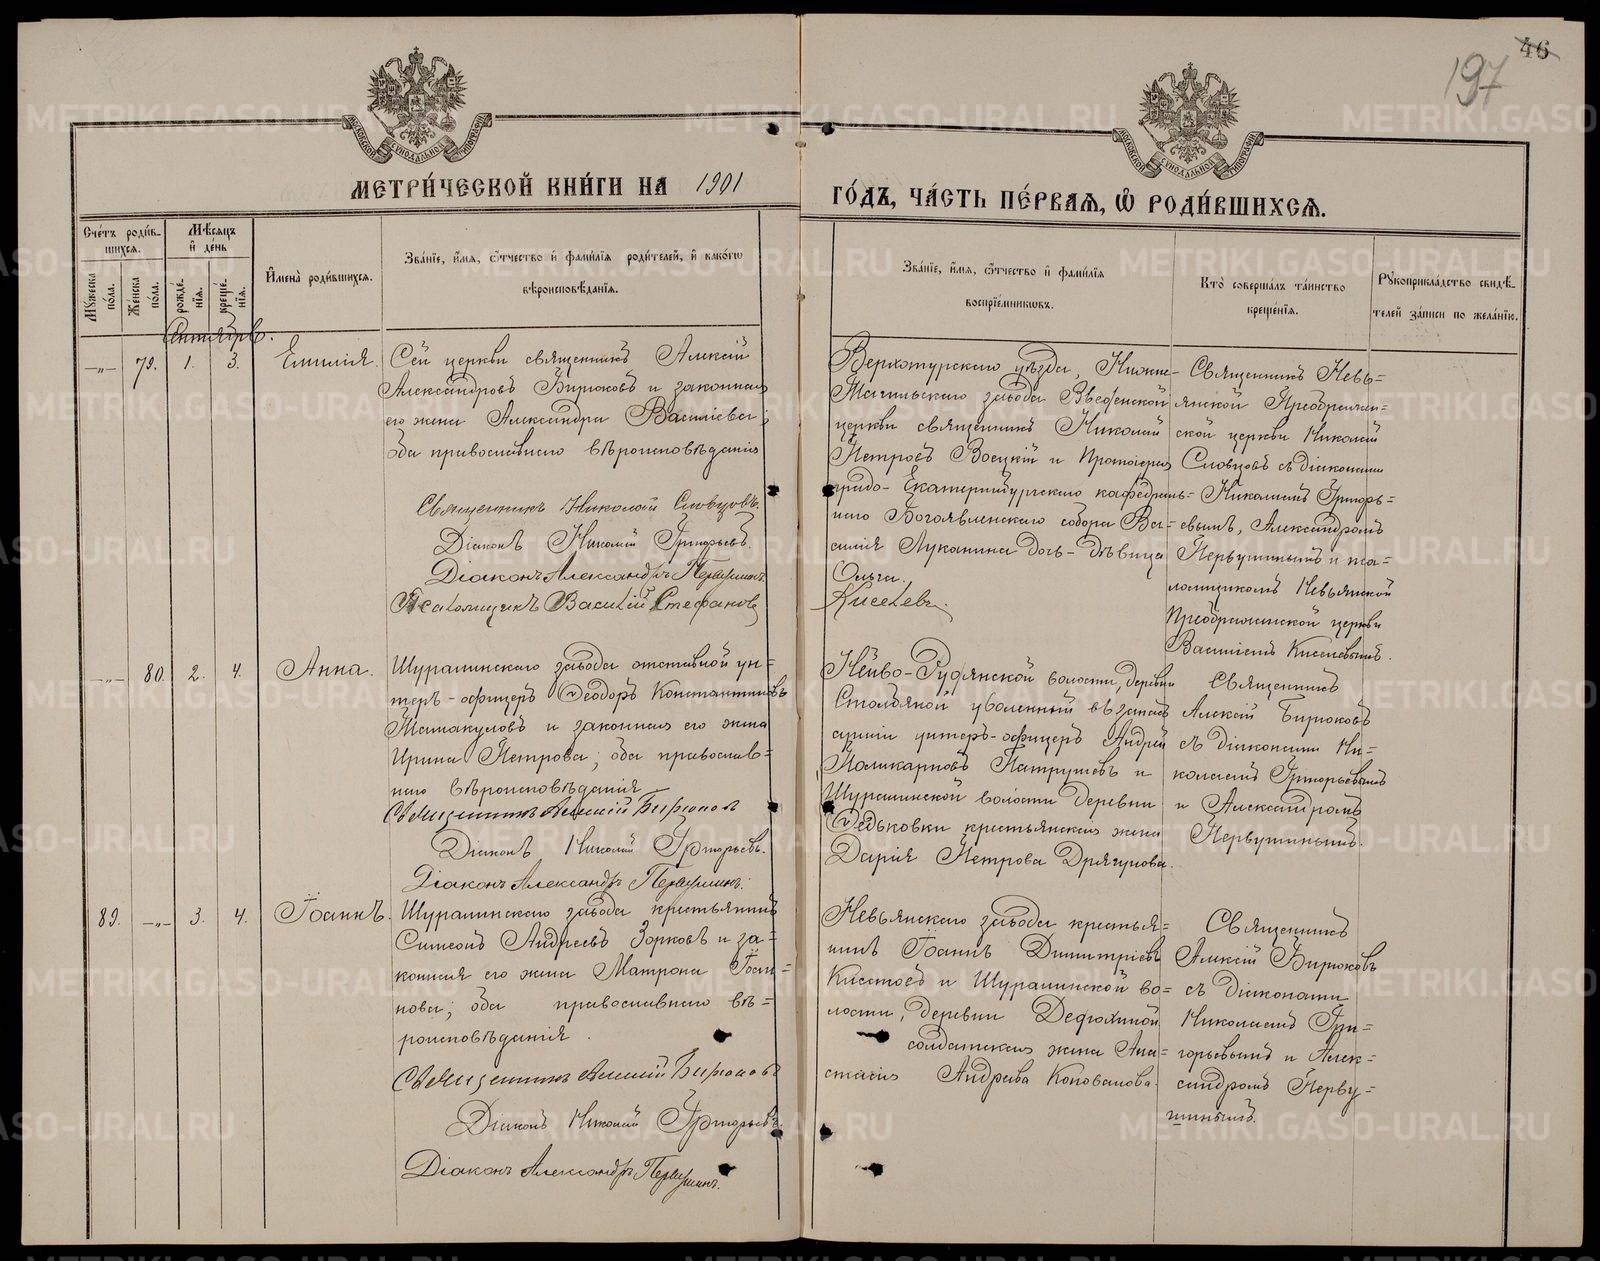 46
197
МЕТРИ́ЧЕСКОЙ КНИ́ГИ НА 1901
ГО́ДЪ, ЧА́СТЬ ПЕ́РВАѦ, Ѡ҆ РОДИ́ВШИХСѦ.
Сче́тъ роди́в-
шихся.
Мѣ́сяцъ
и҆ де́нь
Му́жеска по́ла.
Же́нска по́ла.
рожде́-нія.
креще́-нія.
И҆мена̀ роди́вшихся.
Зва́ніе, и҆́мя, ѻ҆́тчество и҆ фами́лія роди́телей, и҆ како́гѡ
вѣроисповѣ́данія.
Зва́ніе, и҆́мя, ѻ҆́тчество и҆ фами́лія
воспріе́мниковъ.
Кто̀ соверша́лъ та́инство
креще́нія.
Рукоприкла́дство свидѣ́-
телей за́писи по жела́нію.
Сентябрь.
—„— 79. 1. 3. Емилія.
Сей церкви священникъ Алексій
Александровъ Бирюковъ и законная
его жена Александра Васильева;
оба православнаго вѣроисповѣданія
Священникъ Николай Словцовъ.
Діаконъ Николай Григорьевъ.
Діаконъ Александръ Первушинъ
Псаломщикъ Василій Стефановъ
Верхотурскаго уѣзда, Нижне-
Тагильскаго завода Введенской
церкви священникъ Николай
Петровъ Воецкій и Протоіерея
градо-Екатеринбургскаго кафедраль-
наго Богоявленскаго собора Ва-
силія Луканина дочь-дѣвица
Ольга.
Киселевъ.
Священникъ Невь-
янской Преображен-
ской церкви Николай
Словцовъ съ діаконами
Николаемъ Григорь-
евымъ, Александромъ
Первушинымъ и пса-
ломщикомъ Невьянской
Преображенской церкви
Василіемъ Киселевымъ.
—„— 80. 2. 4. Анна.
Шуралинскаго завода отставной ун-
теръ-офицеръ Ѳеодоръ Константиновъ
Матакуловъ и законная его жена
Ирина Петрова; оба православ-
наго вѣроисповѣданія
Священникъ Алексій Бирюковъ
Діаконъ Николай Григорьевъ.
Діаконъ Александръ Первушинъ.
Нейво-Рудянской волости, деревни
уволенный въ запасъ
арміи унтеръ-офицеръ Андрей
Поликарповъ Патрушевъ и
Шуралинской волости деревни
Ѳедьковки крестьянская жена
Дарія Петрова Дрягунова.
Священникъ
Алексій Бирюковъ
съ діаконами Ни-
колаемъ Григорьевымъ
и Александромъ
Первушинымъ.
89. —„— 3. 4. Іоаннъ.
Шуралинскаго завода крестьянинъ
Симеонъ Андреевъ Зорковъ и за-
конная его жена Матрона Іоан-
нова; оба православнаго вѣ-
роисповѣданія.
Священникъ Алексій Бирюковъ
Діаконъ Николай Григорьевъ.
Діаконъ Александръ Первушинъ.
Невьянскаго завода крестья-
нинъ Іоаннъ Димитріевъ
и Шуралинской во-
лости, деревни
солдатская жена Ана-
стасія Андреева Коновалова.
Священникъ
Алексій Бирюковъ
съ діаконами
Николаемъ Гри-
горьевымъ и Алек-
сандромъ Перву-
шинымъ.
METRIKI.GASO-URAL.RU